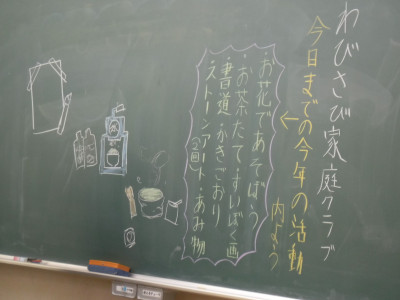 わびさび家庭クラブ
今日までの今年の活動
内よう
お花であそぼう
・お茶たて・すいぼく画
・書道・かきごおり
・ストーンアート・あみ物
(2回)